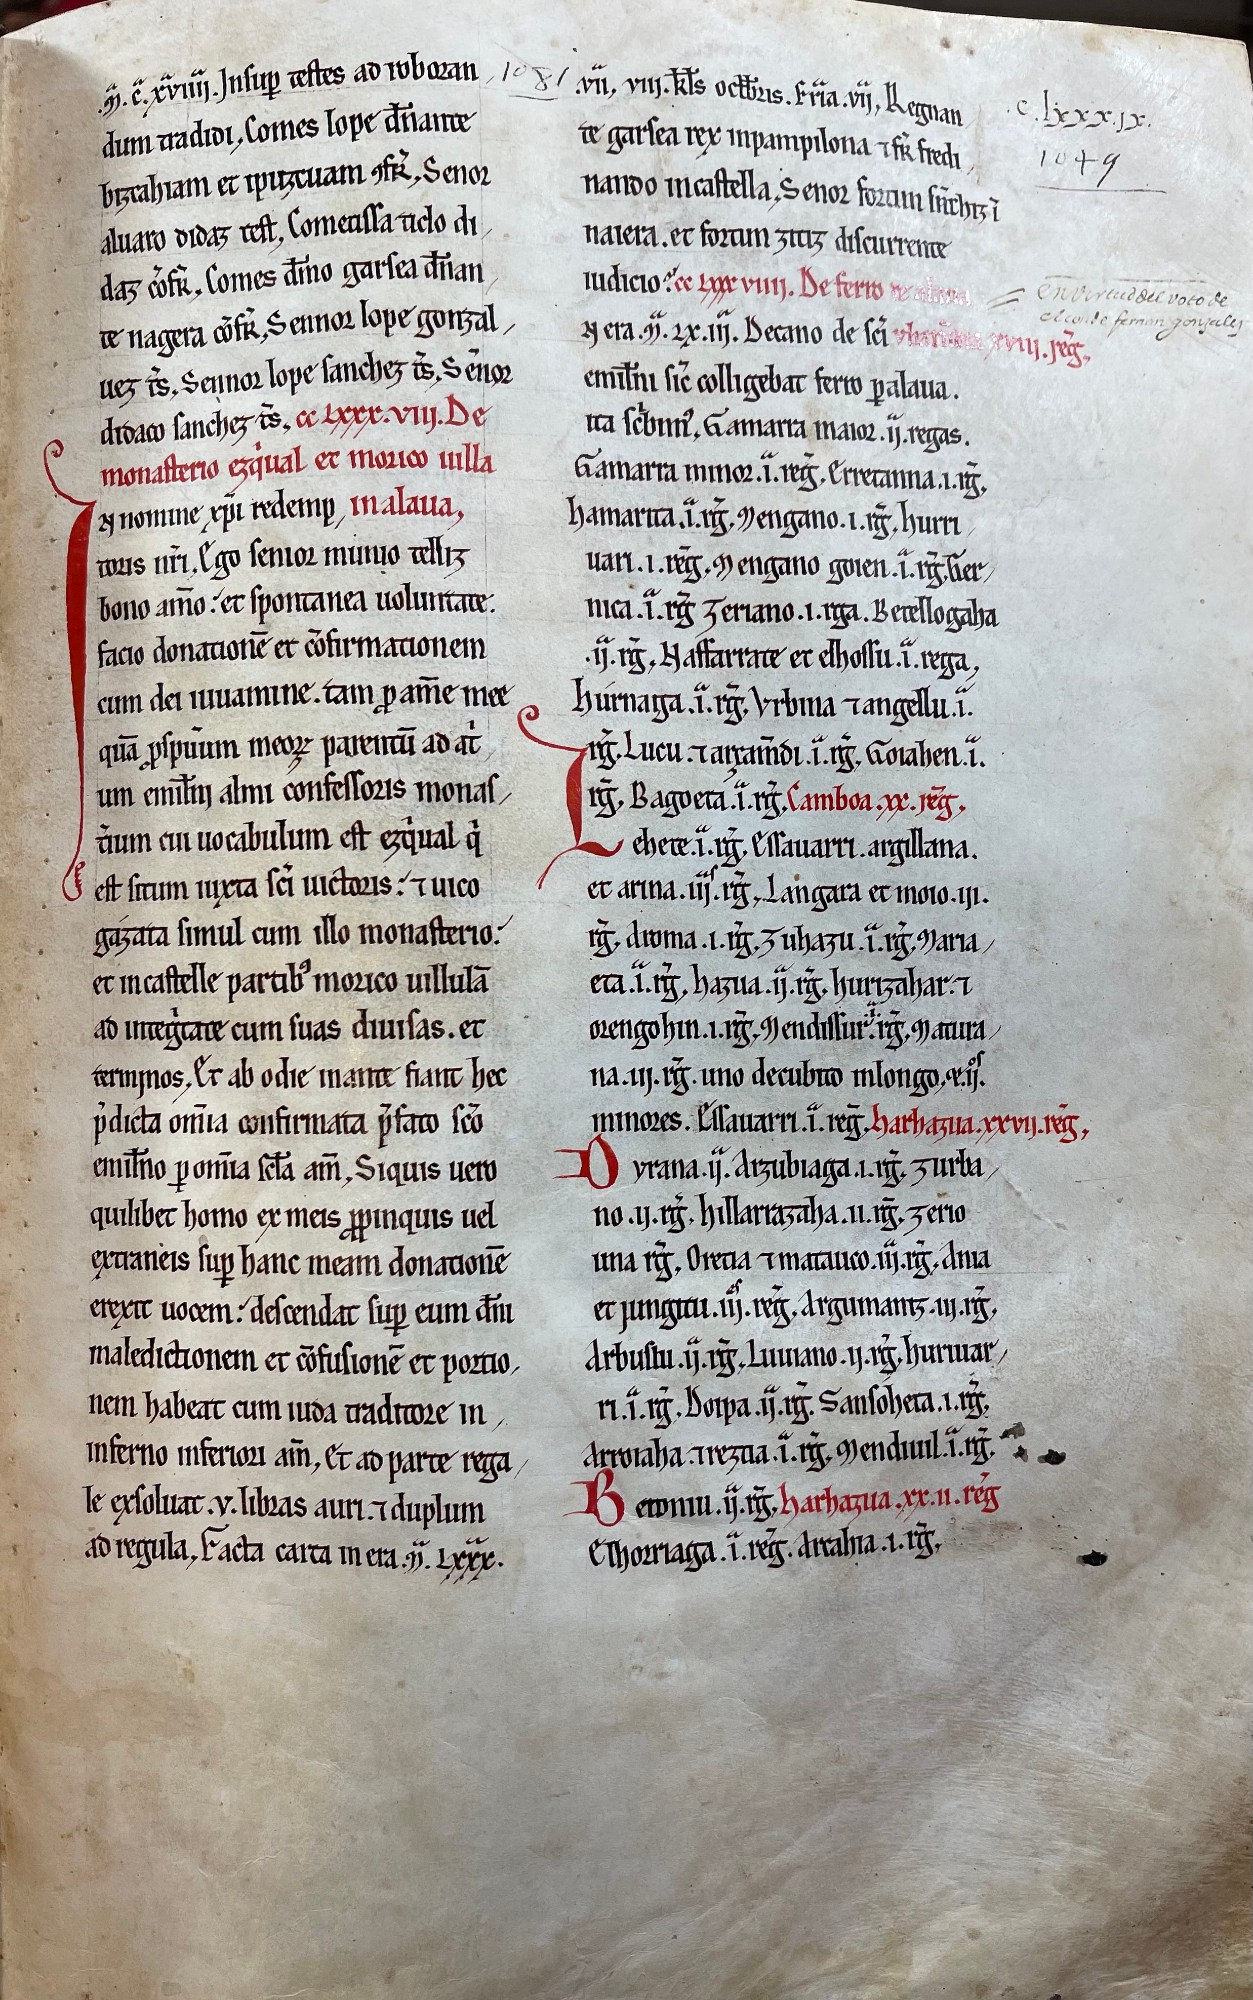 .m̃. c̃. xviiii. Insup̱ testes ad roboran,
dum tradidi, Comes lope dñante
bizcahiam et ipuzcuam ꝯfr̃, Senor
aluaro didaz test, Cometissa ticlo di,
daz cõfr̃, Comes dño garsea dñan,
te nagera cõfr̃, Sennor lope gonzal,
uez t̃s, Sennor lope sanchez t̃s, Señor
didaco sanchez t̃s, cc Lxxx.viii. De
monasterio ezq̾ual et morico uilla
in alaua,
N nomine xp̃i redemp,
toris nr̃i, Ego senior munio telliz
bono aĩo: et spontanea uoluntate.
facio donationẽ et cõfirmationem
cum dei iuuamine. tam p̱ aĩme mee
quã p̱sp̱uum meoꝝ parentũ ad at̾
um emil̃ij almi confessoris monas,
t̾ium cui uocabulum est ezq̾ual q̾
est situm iuxta sc̃i uictoris: ⁊ uico
gázata simul cum illo monasterio:
et in castelle partibꝰ morico uillulã
ad integ̾tate cum suas diuisas. et
terminos, Et ab odie in ante fiant hec
p̾dicta om̃ia confirmata p̾fato sc̃o
emil̃no p̱ om̃ia sc̃la am̃, Siquis uero
quilibet homo ex meis p̱pinquis uel
extraneis sup̱ hanc meam donationẽ
erexit uocem: descendat sup̱ eum dñi
maledictionem et cõfusionẽ et portio,
nem habeat cum iuda traditore in,
inferno inferiori am̃, Et ad parte rega,
le exsoluat .v. libras auri. ⁊ duplum
ad regula, Facta carta in era .m̃. Lxxx.
1081
.vii, viii. kl̃s octobris. fr̃ia .vii, Regnan
te garsea rex in pampilona ⁊ fr̃ fredi,
nando in castella, Senor fortun sñchiz ĩ
naiera. et fortun ziciz discurrente
iudicio: cc Lxxx viiii. De ferro
N era .m̃. Lx.iii. Decano de sc̃i xviii. reg̃,
emil̃ni sic̾ colligebat ferro p̱ alaua.
ita sc̾bimꝰ, Gamarra maior .ii. regas.
Gamarra minor .i. reg̃, Erretanna .i. rg̃,
hamarita .i. rg̃, Mengano .i. rg̃, hurri
uari .i. reg̃, Mengano goien .i. rg̃, Ger,
nica .i. rg̃ Zeriano .i. rga. Betellogaha
.ii. rg̃, Naffarrate et elhossu .i. rega,
húrnaga .i. rg̃, Vrbina ⁊ angellu .i.
rg̃, Lucu ⁊ arzam̃di .i. rg̃, Goiahen .i.
rg̃, Bagoeta .i. rg̃, Camboa .xx. reg̃,
Lehete .i. rg̃, Essauarri. argillana.
et arina .iii. rg̃, Langara et moio .iii.
rg̃, Aroma .i. rg̃, Zuhazu .i. rg̃, Maria,
eta .i. rg̃, hazua .ii. rg̃, hurizahar. ⁊
orengohin .i. rg̃, Mendissur .i. rg̃, Matura,
na .iii. rg̃. uno de cubito in longo, ⁊ .ii.
minores. Essauarri .i. reg̃, harhazua .xxvii. reg̃,
Dyrana .ii. Arzubiaga .i. rg̃, Zurba,
no .ii. rg̃, hillarrazaha .ii. rg̃, Zerio
una rg̃, Oretia ⁊ matauco .iii. rg̃, Ania
et jungitu .iii. reg̃, Argumaniz .iii. rg̃,
Arbustu .ii. rg̃, Luuiano .ii. rg̃, hurniar,
ri .i. rg̃, Doipa .ii. rg̃, Sansóheta .i. rg̃,
Arroiaha ⁊ reztia .i. rg̃, Mendiuil .i. rg̃.
Betoniu .ii. rg̃, harhazua .xx.ii. reg̃
Elhorriaga .i. reg̃, Arcahia .i. rg̃,
.c. lxxx.ix.
1049
en virtud del voto de
el conde fernan gonzales